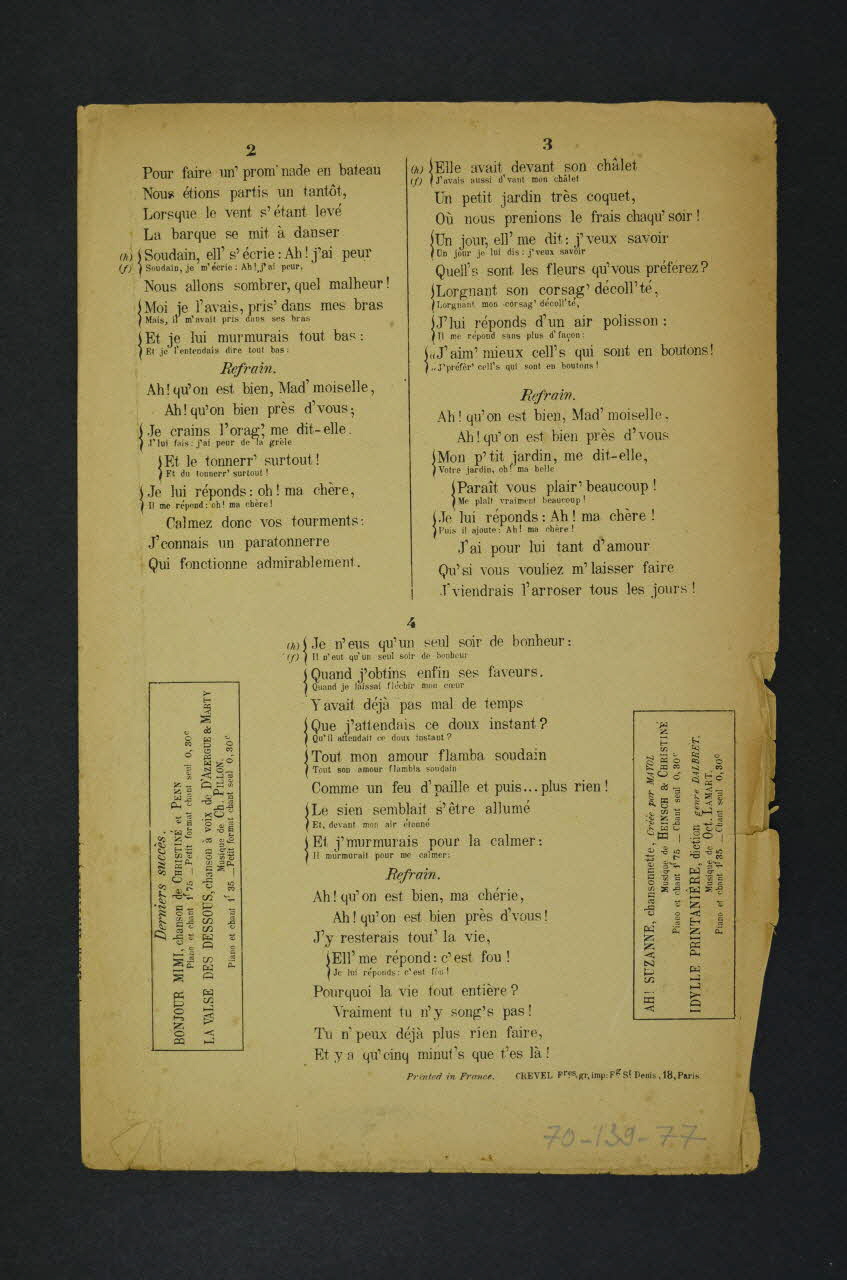 2
Pour faire un' prom'nade en bateau
Nous étions partis un tantôt,
Lorsque le vent s'étant levé
La barque se mit à danser
(h) Soudain, ell' s'écrie : Ah! j'ai peur
(f) Soudain, je m'écrie : Ah!, j'ai peur,
Nous allons sombrer, quel malheur!
Moi je l'avais, pris' dans mes bras
Mais, il m'avait pris dans ses bras
Et je lui murmurais tout bas :
Et je l'entendais dire tout bas :
Refrain.
Ah! qu'on est bien, Mad'moiselle,
Ah! qu'on bien près d'vous;
Je crains l'orag', me dit-elle.
J'lui fais : j'ai peur de la grêle
Et le tonnerr' surtout!
Et du tonnerr' surtout!
Je lui réponds : oh! ma chère,
Il me répond : oh! ma chère!
Calmez donc vos tourments :
J'connais un paratonnerre
Qui fonctionne admirablement.
3
(h) Elle avait devant son châlet
(f) J'avais aussi d'vant mon châlet
Un petit jardin très coquet,
Où nous prenions le frais chaqu' soir!
Un jour, ell' me dit : j'veux savoir
Un jour je lui dis : j'veux savoir
Quell's sont les fleurs qu'vous préférez?
Lorgnant son corsag' décoll'té,
Lorgnant mon corsag' décoll'té,
J'lui réponds d'un air polisson :
Il me répond sans plus d'façon :
"J'aim' mieux cell's qui sont en boutons!
"J'préfèr' cell's qui sont en boutons!
Refrain.
Ah! qu'on est bien, Mad'moiselle,
Ah! qu'on est bien près d'vous
Mon p'tit jardin, me dit-elle,
Votre jardin, oh! ma belle
Paraît vous plair' beaucoup!
Me plaît vraiment beaucoup!
Je lui réponds : Ah! ma chère!
Puis il ajoute : Ah! ma chère!
J'ai pour lui tant d'amour
Qu'si vous vouliez m'laisser faire
J'viendrais l'arroser tous les jours!
4
(h) Je n'eus qu'un seul soir de bonheur :
(f) Il n'eut qu'un seul soir de bonheur
Quand j'obtins enfin ses faveurs.
Quand je laissai fléchir mon cœur
Y avait déjà pas mal de temps
Que j'attendais ce doux instant?
Qu'il attendait ce doux instant?
Tout mon amour flamba soudain
Tout son amour flamba soudain
Comme un feu d'paille et puis... plus rien!
Le sien semblait s'être allumé
Et, devant mon air étonné
Et j'murmurais pour la calmer :
Il murmurait pour me calmer :
Refrain.
Ah! qu'on est bien, ma chérie,
Ah! qu'on est bien près d'vous!
J'y resterais tout' la vie,
Ell' me répond : c'est fou!
Je lui réponds : c'est fou!
Pourquoi la vie tout entière?
Vraiment tu n'y song's pas!
Tu n'peux déjà plus rien faire,
Et y a qu'cinq minut's que t'es là!
Derniers succès.
BONJOUR MIMI, chanson de CHRISTINÉ et PENN
Piano et chant 1f 75 _ Petit format chant seul 0,30c
LA VALSE DES DESSOUS, chanson à voix de D'AZERGUE & MARTY
Musique de CH. PILLON.
Piano et chant 1f 35 _ Petit format chant seul 0,30c
AH! SUZANNE, chansonnette, Créée par MAYOL
Musique de HEINSCH & CHRISTINÉ
Piano et chant 1f 75 _ Chant seul 0,30c
IDYLLE PRINTANIÈRE, diction genre DALBRET.
Musique de Oct. LAMART.
Piano et chant 1f 35 _ Chant seul 0,30c
Printed in France. CREVEL Fres, gr, imp: Fg St Denis, 18, Paris.
70-139-77